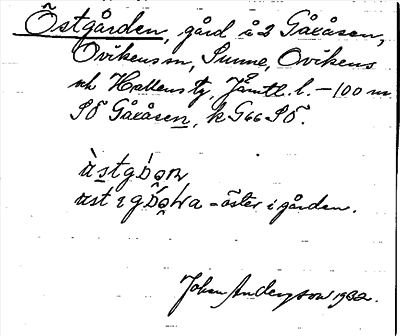 Östgården, gård å 2 Gåxåsen,
Ovikens sn, Sunne, Ovikens
och Hallens tg, Jämtl. l. – 100 m
SÖ Gåxåsen, k G66 SÖ.
öster i gården.
Johan Andersson 1932.